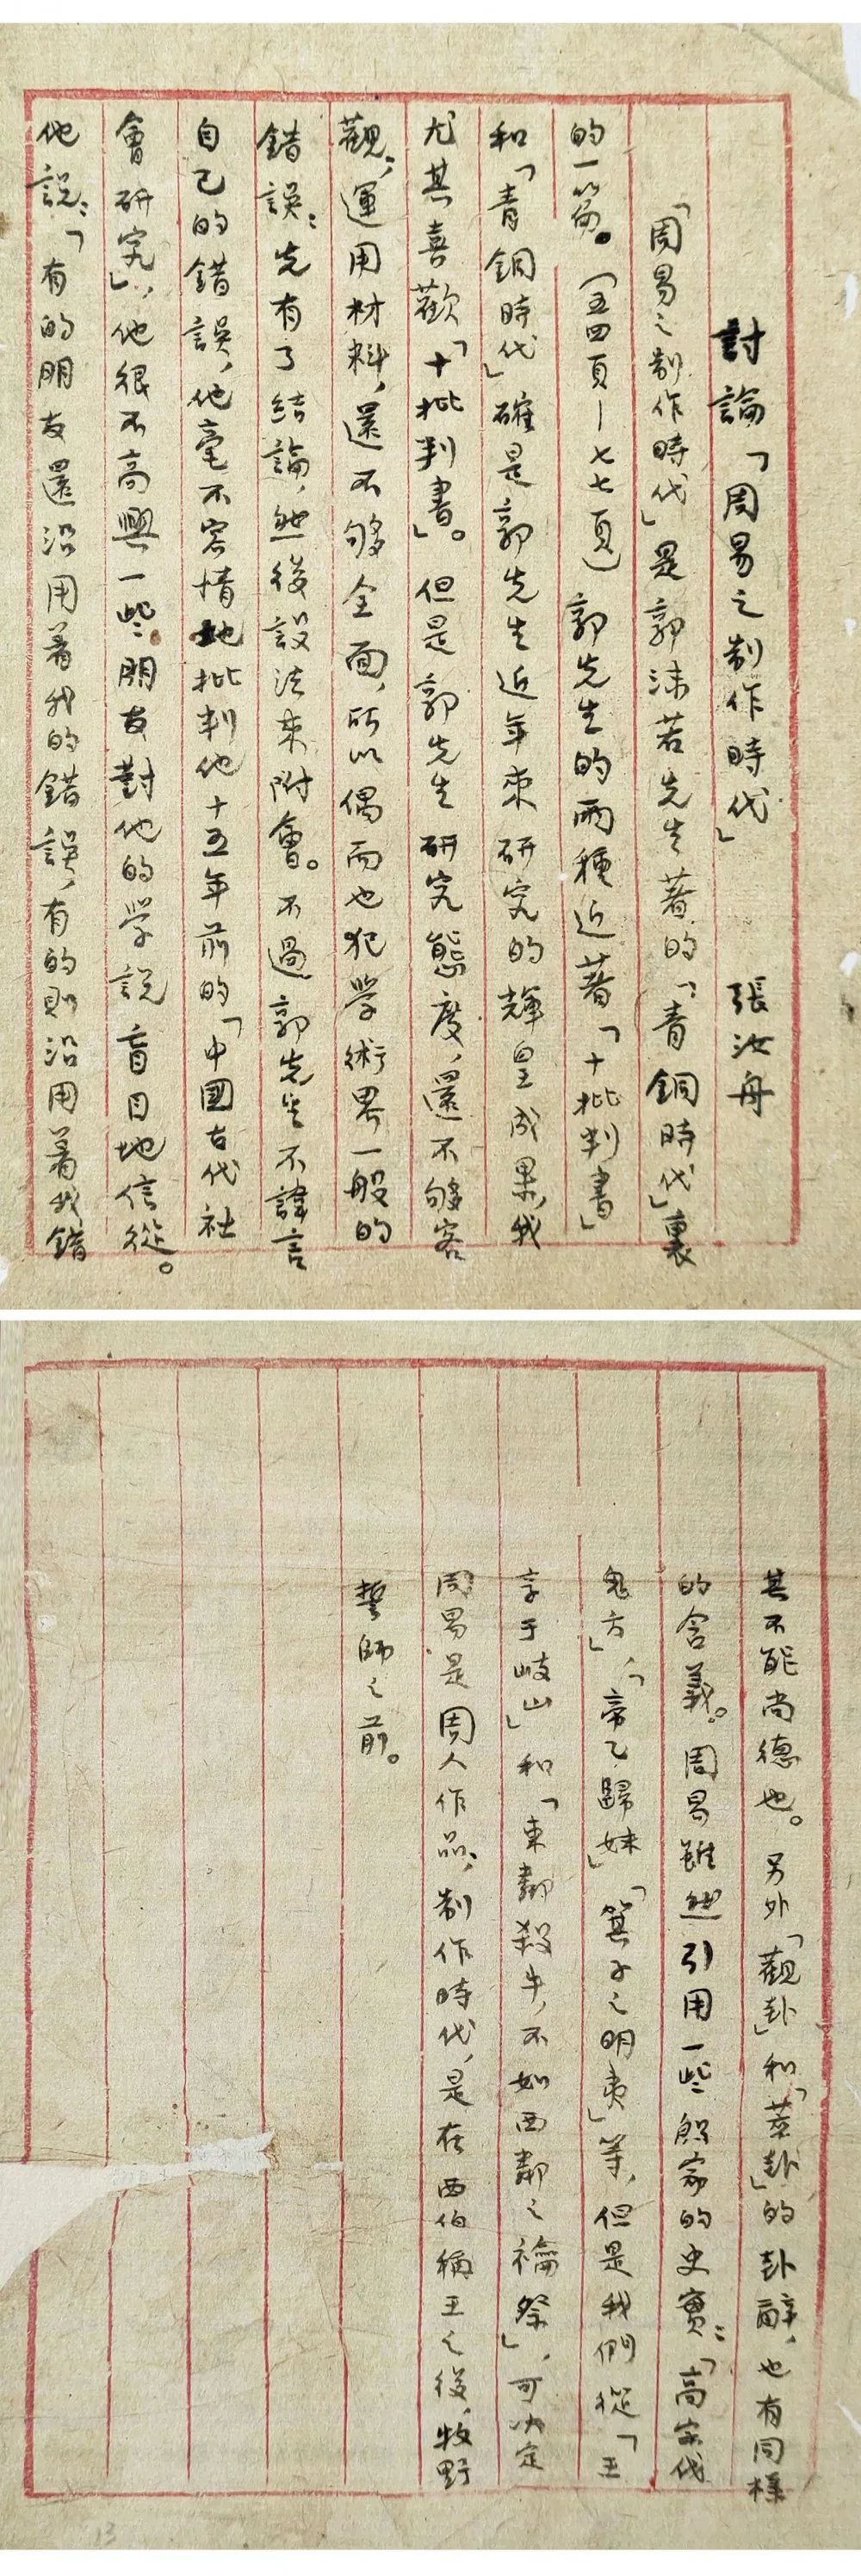 討論「周易之制作時代」 張汝舟
「周易之制作時代」是郭沫若先生著的「青銅時代」裏
的一篇。(五四頁—七七頁)郭先生的兩種近著「十批判書」
和「青銅時代」確是郭先生近年來研究的輝皇成果,我
尤其喜歡「十批判書」。但是郭先生研究態度,還不够客
觀;運用材料,還不够全面,所以偶而也犯学術界一般的
錯誤:先有了結論,然後設法來附會。不過郭先生不諱言
自己的錯誤,他毫不容情地批判他十五年前的「中國古代社
會研究」,他很不高興一些朋友對他的学說盲目地信從。
他說:「有的朋友還沿用着我的錯誤,有的則沿用着我錯
其不能尚德也。另外「觀卦」和「萃卦」的卦辭,也有同樣
的含義。周易雖然引用一些殷家的史實:「高宗伐
鬼方」,「帝乙歸妹」「箕子之明夷」等,但是我們從「王
享于岐山」和「東鄰殺牛,不如西鄰之禴祭」,可决定
周易是周人作品;制作時代,是在西伯稱王之後,牧野
誓師之前。